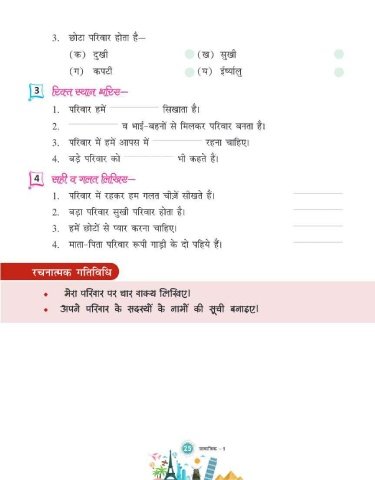 3. छोटा परिवार होता है–
(क) दुखी (ख) सुखी
(ग) कपटी (घ) ईर्ष्यालु
3 रिक्त स्थान भरिए–
1. परिवार हमें सिखाता है।
2. व भाई-बहनों से मिलकर परिवार बनता है।
3. परिवार में हमें आपस में रहना चाहिए।
4. बड़े परिवार को भी कहते है।
4 सही व गलत लिखिए–
1. परिवार में रहकर हम गलत चीज़ें सीखते हैं।
2. बड़ा परिवार सुखी परिवार होता है।
3. हमें छोटों से प्यार करना चाहिए।
4. माता-पिता परिवार रूपी गाड़ी के दो पहिये हैं।
रचनात्मक गतिविधि
• मेरा परिवार पर चार वाक्य लिखिए।
• अपने परिवार के सदस्यों के नामों की सूची बनाइए।
25 सामाजिक - 1